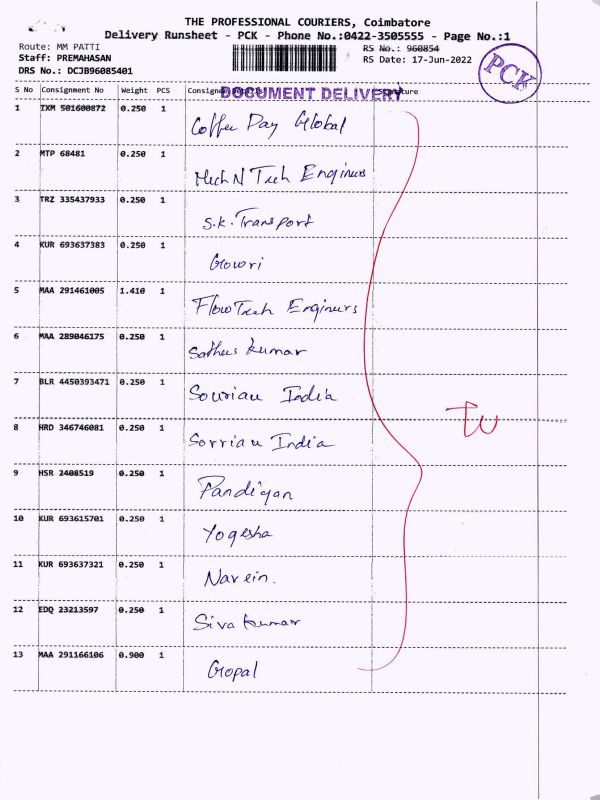 THE PROFESSIONAL COURIERS, Coimbatore
Delivery Runsheet - PCK - Phone No.:0422-3505555 - Page No.:1
Route: MM PATTI
RS No.: 960854
Staff: PREMAHASAN
RS Date: 17-Jun-2022
DRS No.: DCJB96085401
PCK
S No Consignment No Weight PCS
DOCUMENT DELIVERY
1 TXM 501600872 0.250 1 Coffee Day Global
2 MTP 68481 0.250 1 Mech N Tech Enginers
3 TRZ 335437933 0.250 1 S.K. Transport
4 KUR 693637383 0.250 1 Gowri
5 MAA 291461005 1.410 1 FlowTech Enginers
6 MAA 289046175 0.250 1 Sathus kumar
7 BLR 4450393471 0.250 1 Souriau India
8 HRD 346746081 0.250 1 Sorriau India
9 HSR 2408519 0.250 1 Pandiyan
10 KUR 693615701 0.250 1 Yogesha
11 KUR 693637321 0.250 1 Narein.
12 EDQ 23213597 0.250 1 Siva kumar
13 MAA 291166106 0.900 1 Gopal